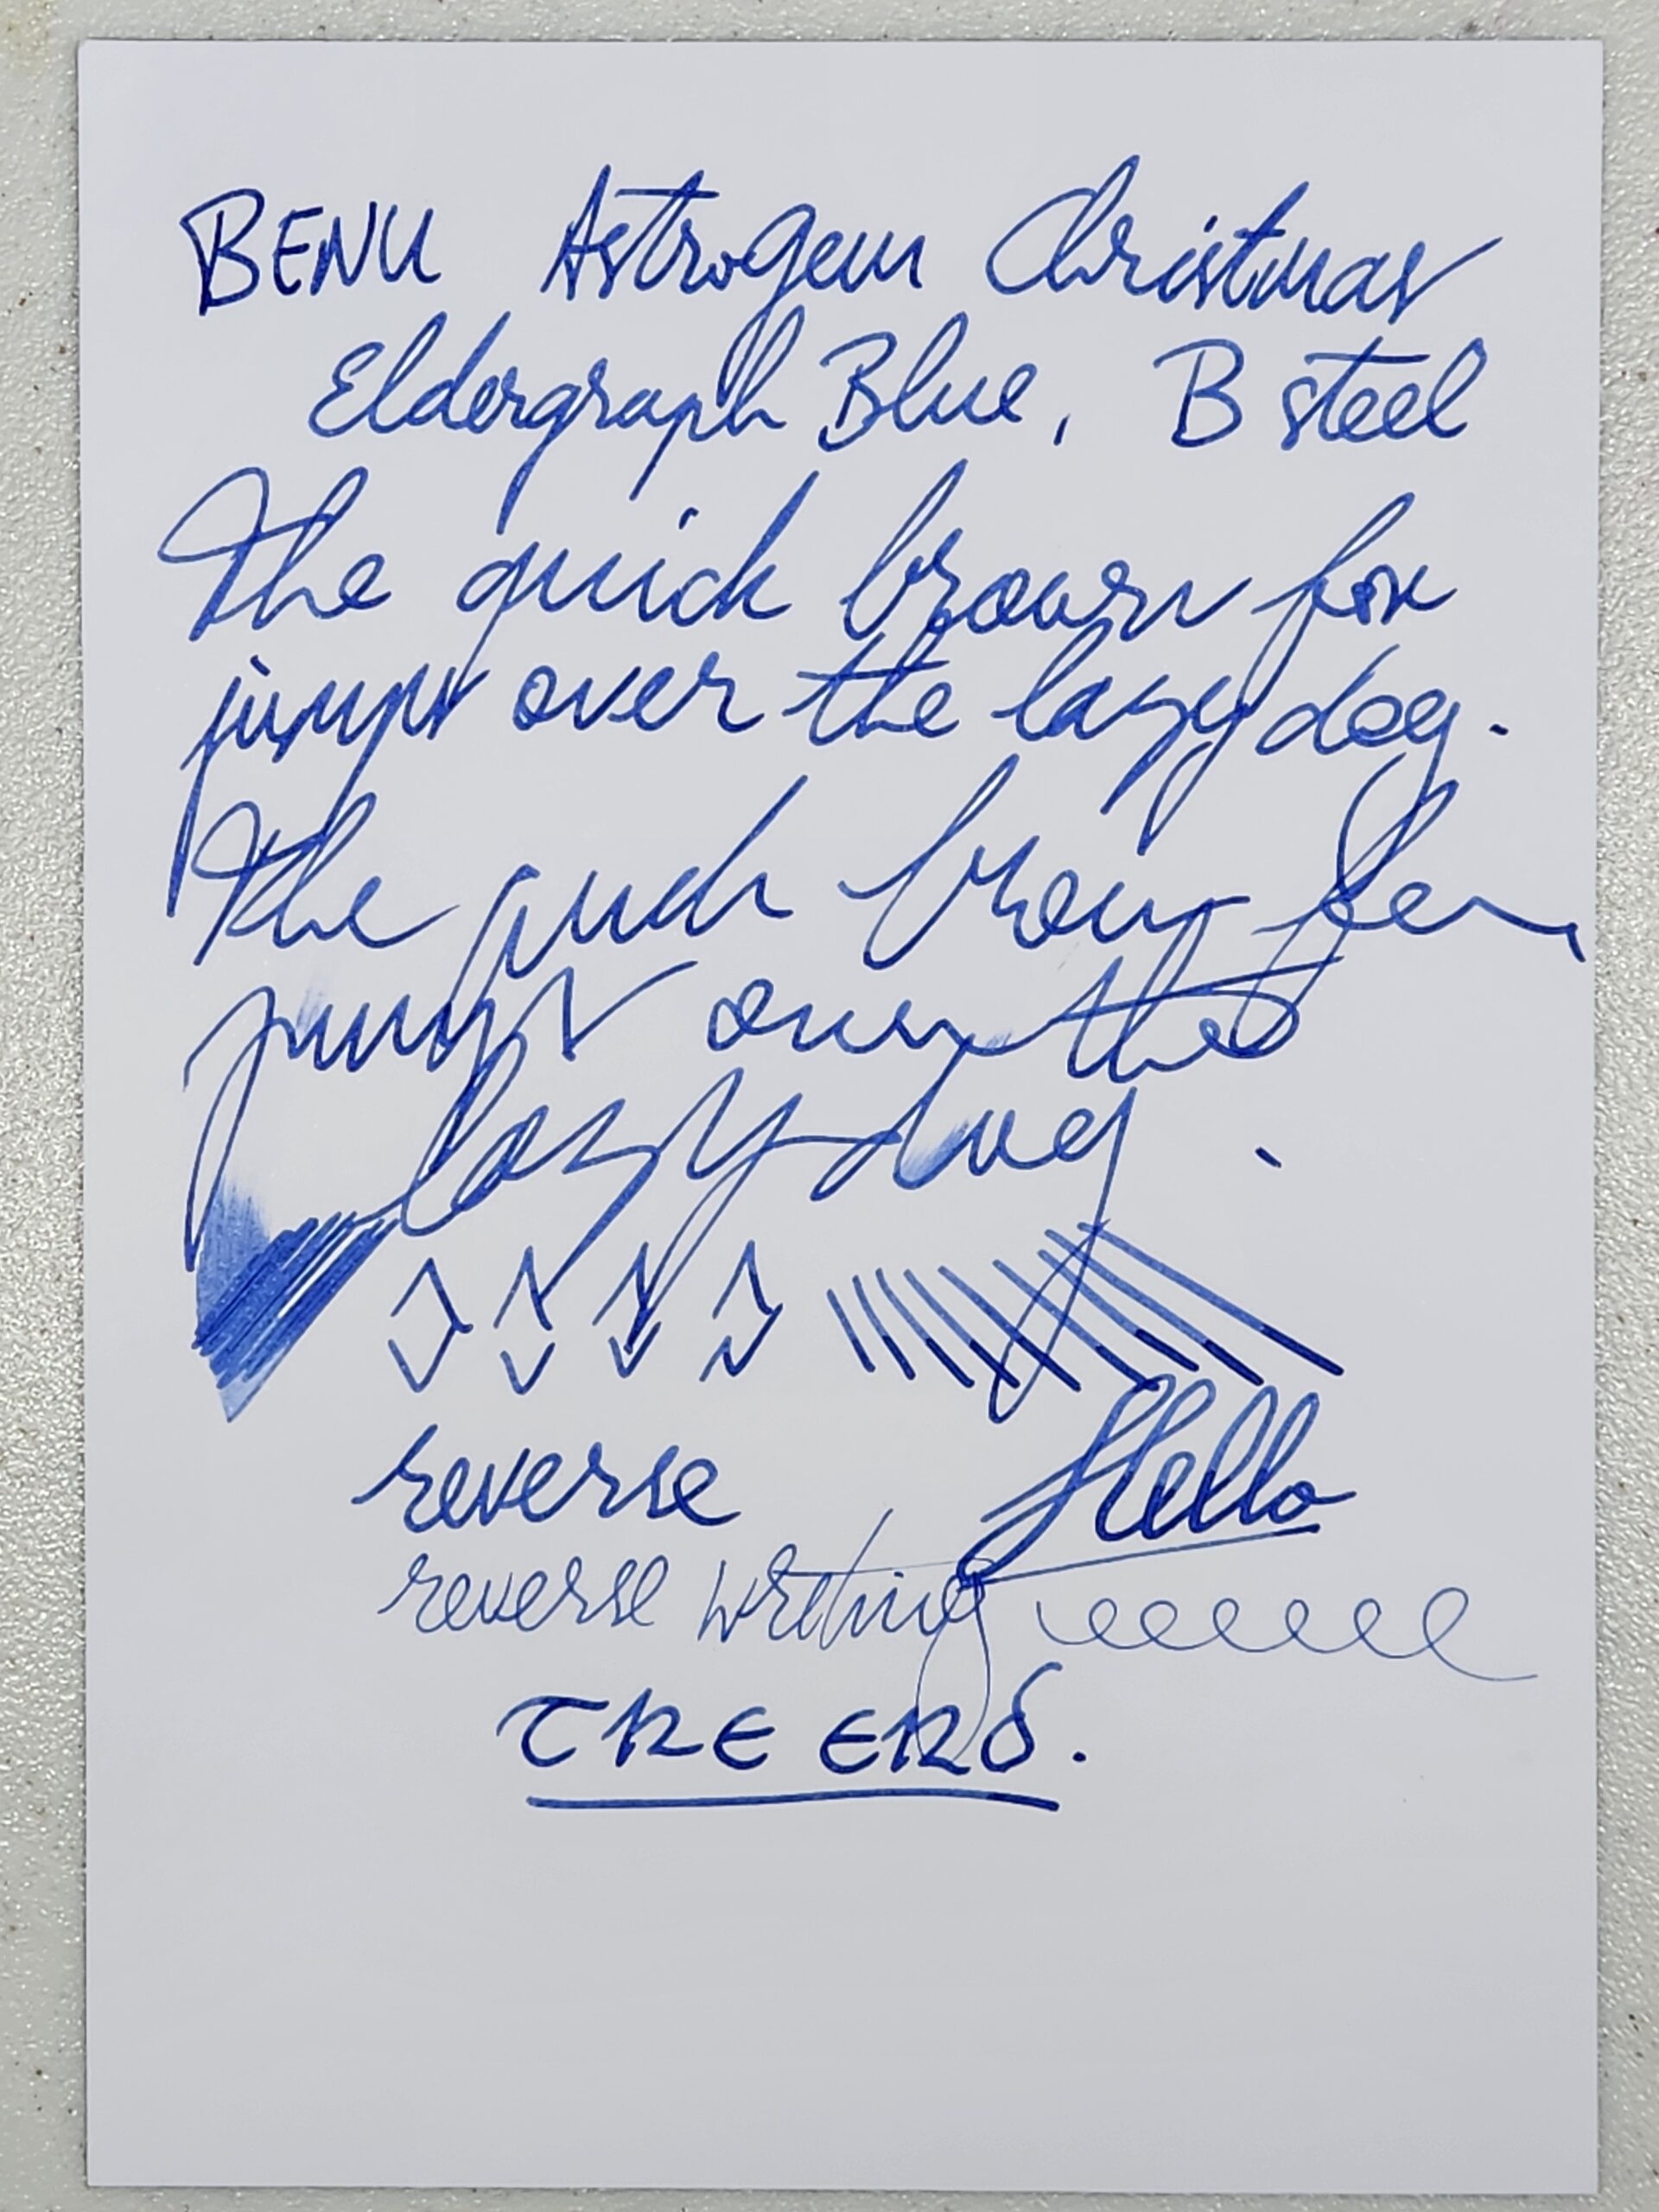 BENU Astrogem Christmas
Eldergraph Blue, B steel
The quick brown fox
jumps over the lazy dog.
The quick brown fox
jumps over the
lazy dog.
reverse Hello
reverse writing
THE END.